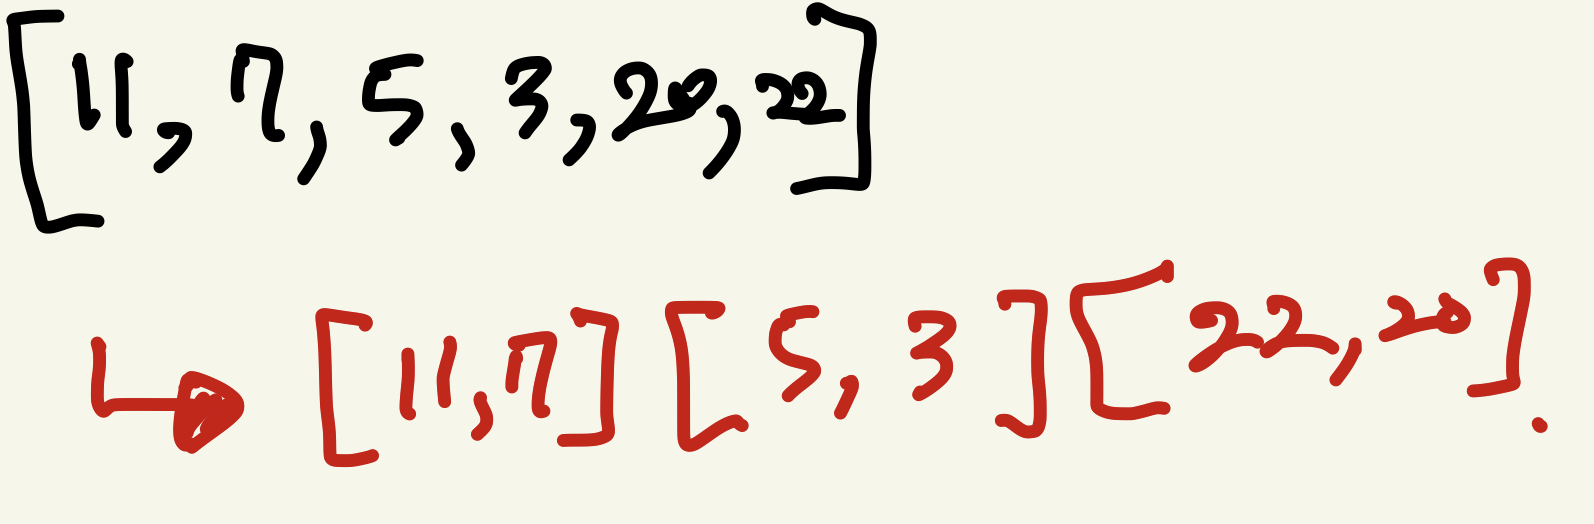 [11, 7, 5, 3, 20, 22]
[11, 7] [5, 3] [22, 20].